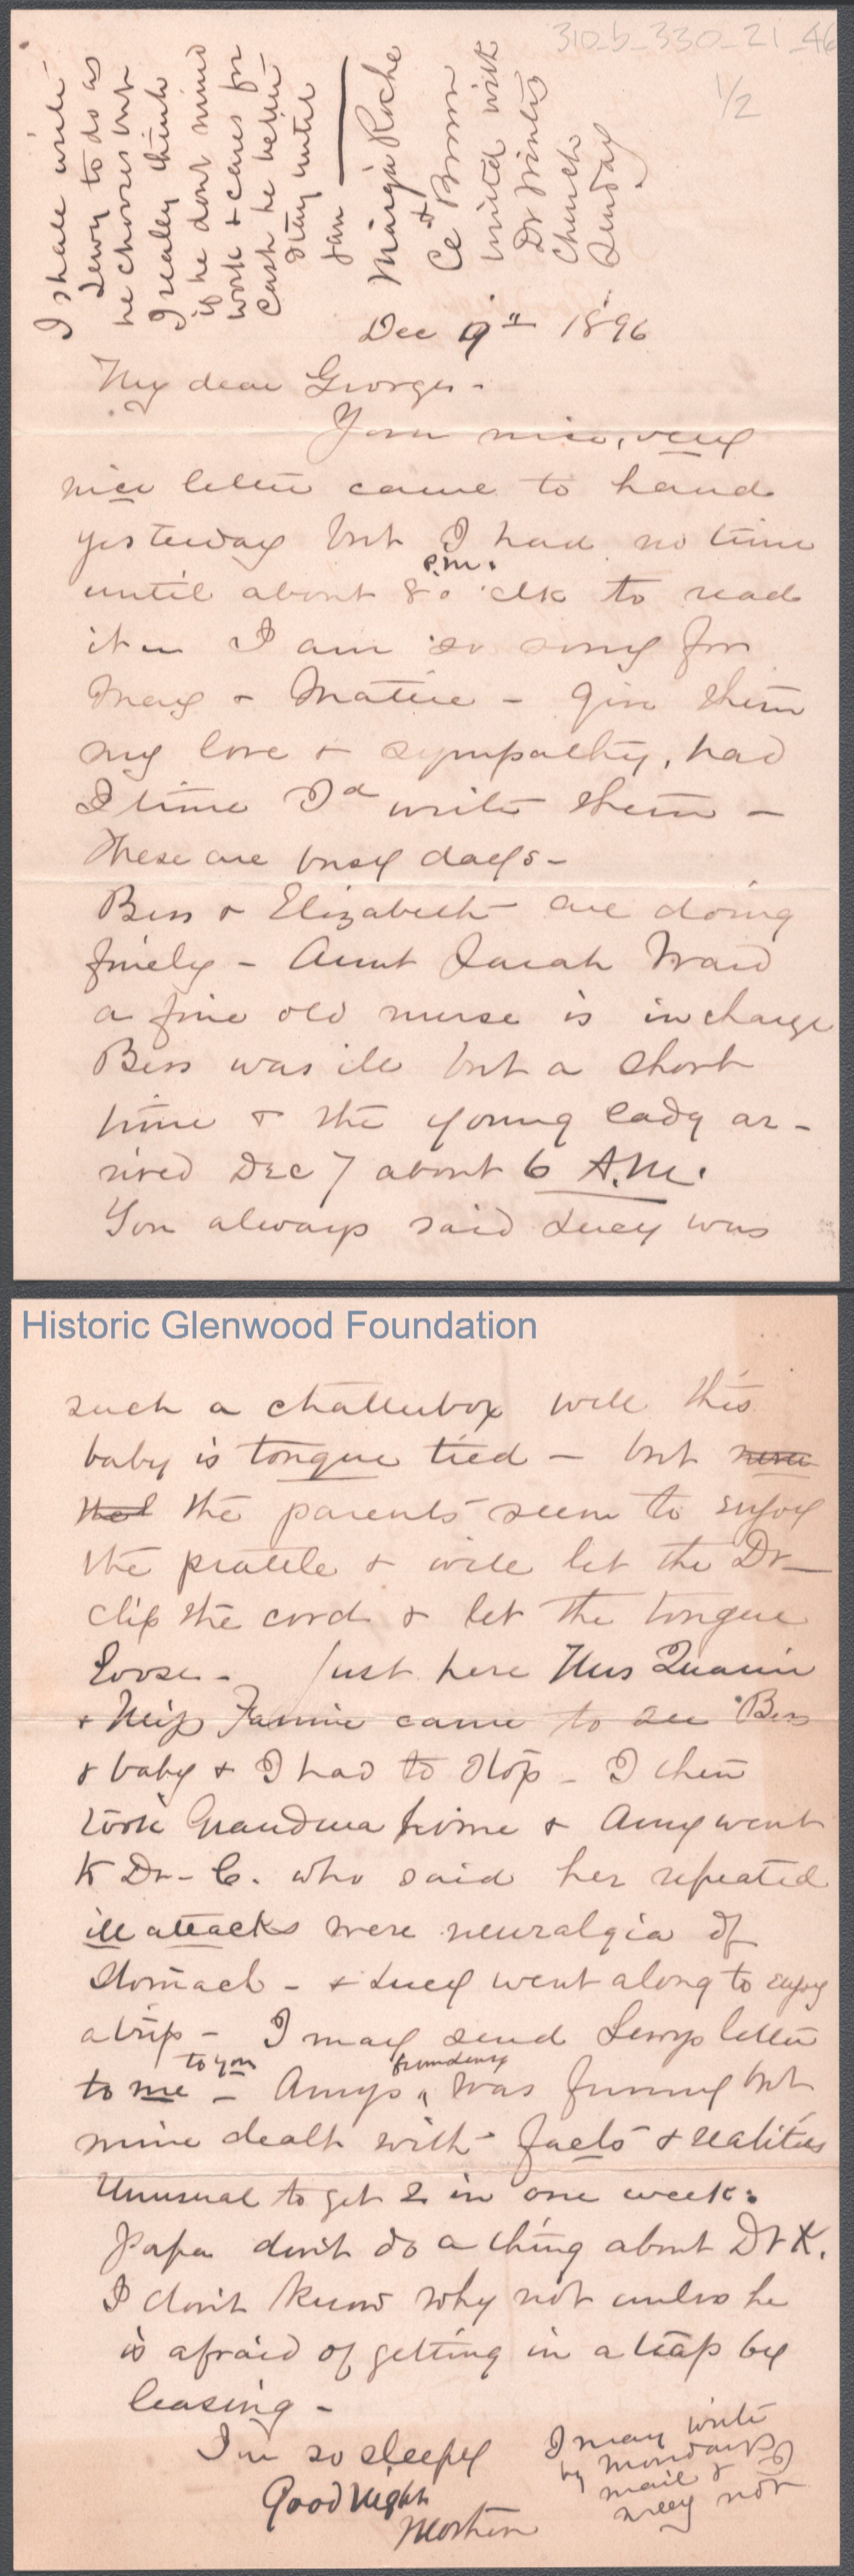 310_b_330_21_46
1/2
I shall write
Lewy to do as
he chooses but
I really think
if he dont mind
work & cares for
cash he better
stay until
Jan
Margie Roche
&
Ce Brown
united with
Dr Winters
Church
Sunday
Dec 9" 1896
My dear Georges -
Your nice, very
nice letter came to hand
yesterday but I had no time
p.m.
until about 8 o'clk to read
it I am so sorry for
Mary & Mattie - give them
my love & sympathy, had
I time I'd write them -
These are busy days -
Bess & Elizabeth are doing
finely - Aunt Sarah Ward
a fine old nurse is in charge
Bess was ill but a short
time & the young lady ar-
rived Dec 7 about 6 A.M.
You always said Lucy was
Historic Glenwood Foundation
such a chatterbox well this
baby is tongue tied - but
the parents seem to enjoy
the prattle & will let the Dr
clip the cord & let the tongue
loose - Just here Mrs
& Miss Fannie came to see Bess
& baby & I had to stop - I then
took Grandma home & Amy went
to Dr - C. who said her repeated
ill attacks were neuralgia of
stomach - & Lucy went along to enjoy
a trip - I may send Lewys letter
to you from Lewy
to me - Amys was funny but
mine dealt with facts & realities
Unusual to get 2 in one week.
Papa don't do a thing about Dr K.
I don't know why not unless he
is afraid of getting in a trap by
leasing -
I'm so sleepy
Good Night
Mother
I may write
by Mondays
mail & I
may not